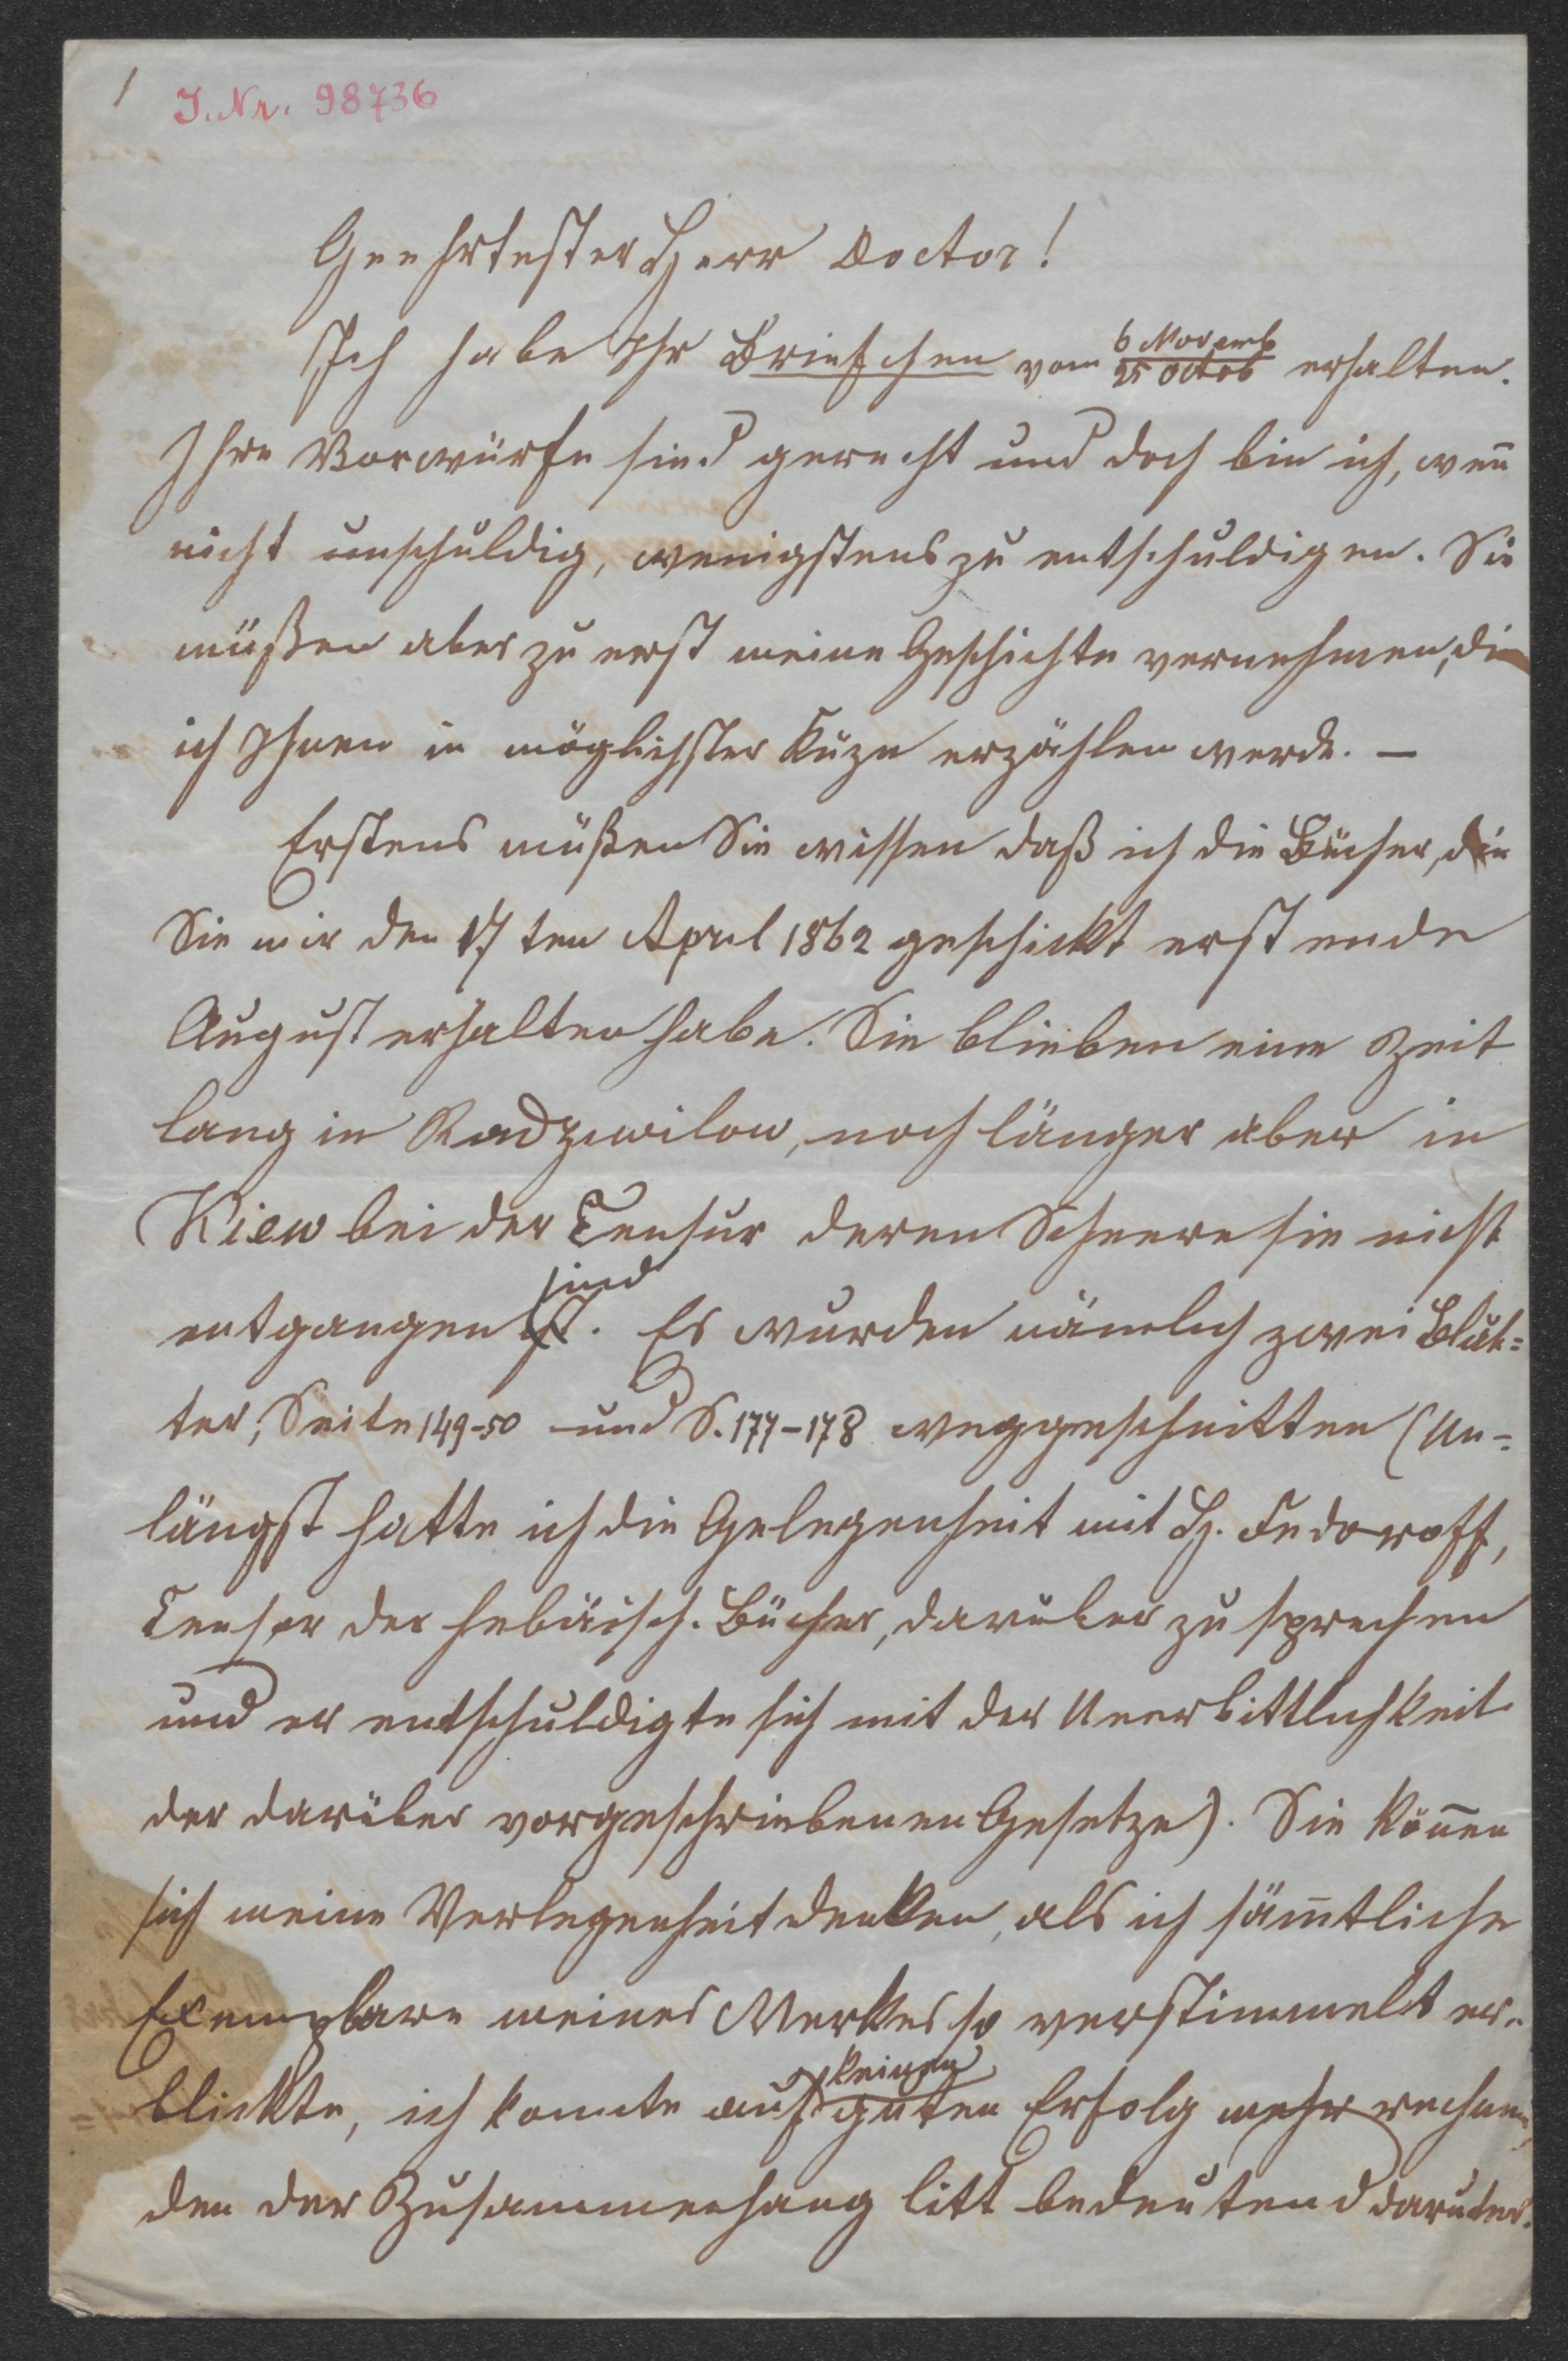 1
I. Nr. 98736
Geehrtester Herr Doctor!
Ich habe Ihr Briefchen vom 6 Novemb / 25 Octob erhalten.
Ihre Vorwürfe sind gerecht und doch bin ich, wen̄
nicht unschuldig, wenigstens zu entschuldigen. Sie
müßen aber zu erst meine Geschichte vernehmen, die
ich Ihnen in möglichster Küze erzählen werde. —
Erstens müßen Sie wissen daß ich die Bücher, die
Sie mir den 17ten April 1862 geschickt erst ende
August erhalten habe. Sie blieben eine Zeit
lang in Radziwilow, noch länger aber in
Kiew bei der Censur deren Scheere sie nicht
entgangen sind. Es wurden nämlich zwei Blät=
ter, Seite 149-50 und S. 177-178 weggeschnitten (Un=
längst hatte ich die Gelegenheit mit H. Fedoroff,
Censor der hebäisch. Bücher, darüber zu sprechen
und er entschuldigte sich mit der Unerbittlichkeit
der darüber vorgeschriebenen Gesetze). Sie kön̄en
sich meine Verlegenheit denken, als ich säm̄tliche
Exemplare meines Werkes so verstümmelt er=
blickte, ich konnte auf keinen guten Erfolg mehr rechnen,
den der Zusammenhang litt bedeutend darunter.